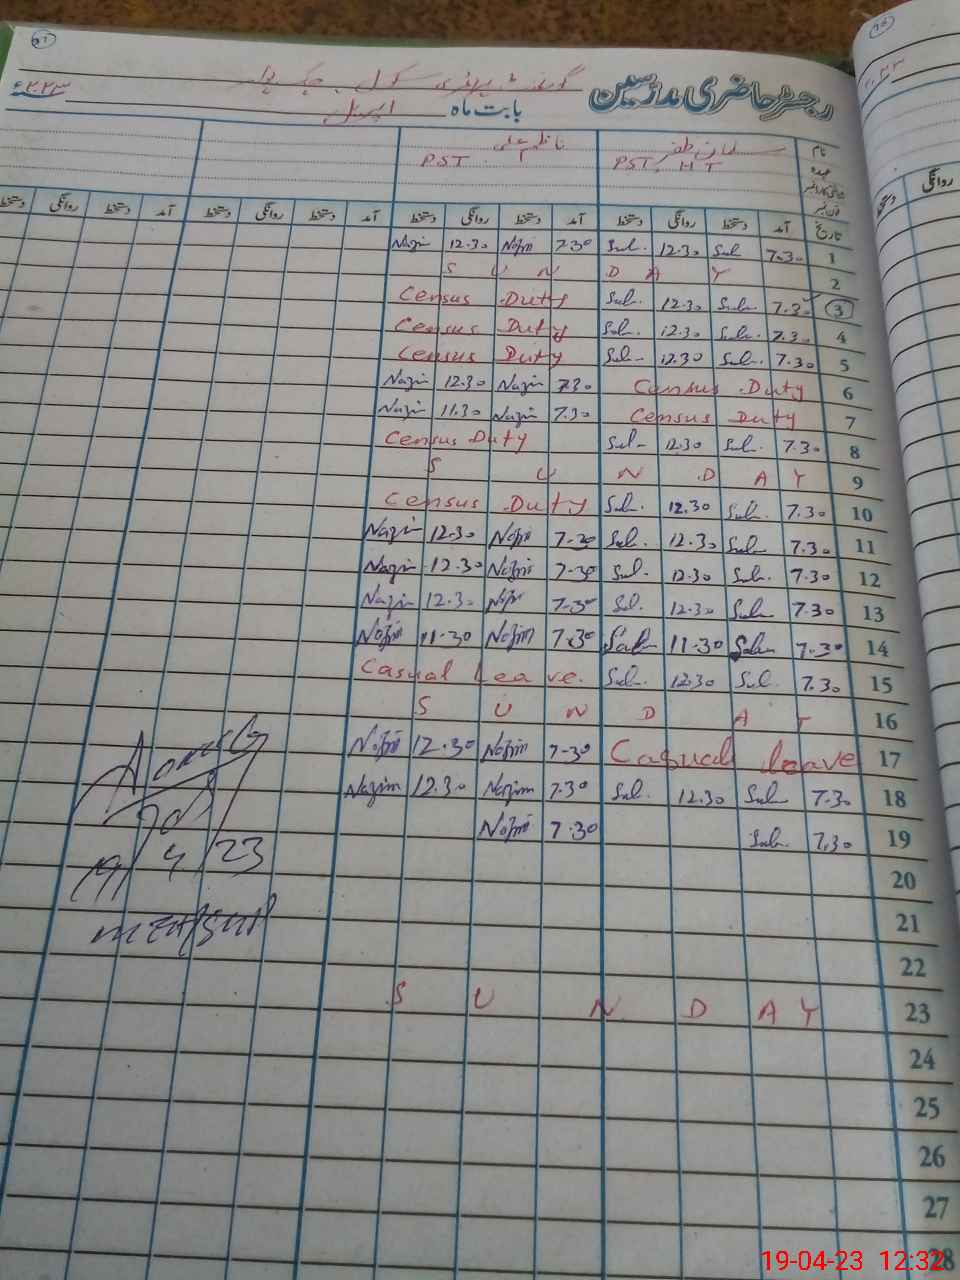 رجسٹر حاضری مدرسین گورنمنٹ پرائمری سکول
بابت ماہ اپریل ۲۰۲۳ء
نام سلمان ظفر ناظم علی
عہدہ PST. HT PST
تاریخ آمد دستخط روانگی دستخط آمد دستخط روانگی دستخط آمد دستخط روانگی دستخط آمد دستخط روانگی دستخط
1 7.30 Sal 12.30 Sal. 7.30 Nazim 12.30 Nazim
2 SUNDAY
3 7.30 Sal 12.30 Sal. Census Duty
4 7.30 Sal. 12.30 Sal. Census Duty
5 7.30 Sal. 12.30 Sal Census Duty
6 Census Duty 7.30 Nazim 12.30 Nazim
7 Census Duty 7.30 Nazim 11.30 Nazim
8 7.30 Sal. 12.30 Sal Census Duty
9 SUNDAY
10 7.30 Sal. 12.30 Sal. Census Duty
11 7.30 Sal 12.30 Sal. 7-30 Nazim 12.30 Nazim
12 7.30 Sal. 12.30 Sal. 7-30 Nazim 12.30 Nazim
13 7.30 Sal 12.30 Sal. 7-30 Nazim 12.30 Nazim
14 7.30 Sal 11.30 Sal 7.30 Nazim 11-30 Nazim
15 7.30 Sal. 12.30 Sal. Casual Leave.
16 SUNDAY
17 Casual leave 7-30 Nazim 12.30 Nazim
18 7.30 Sal 12.30 Sal. 7.30 Nazim 12.30 Nazim
19 7.30 Sal. 7.30 Nazim
20
21
22
23 SUNDAY
24
25
26
27
28
19/4/23
19-04-23 12:32